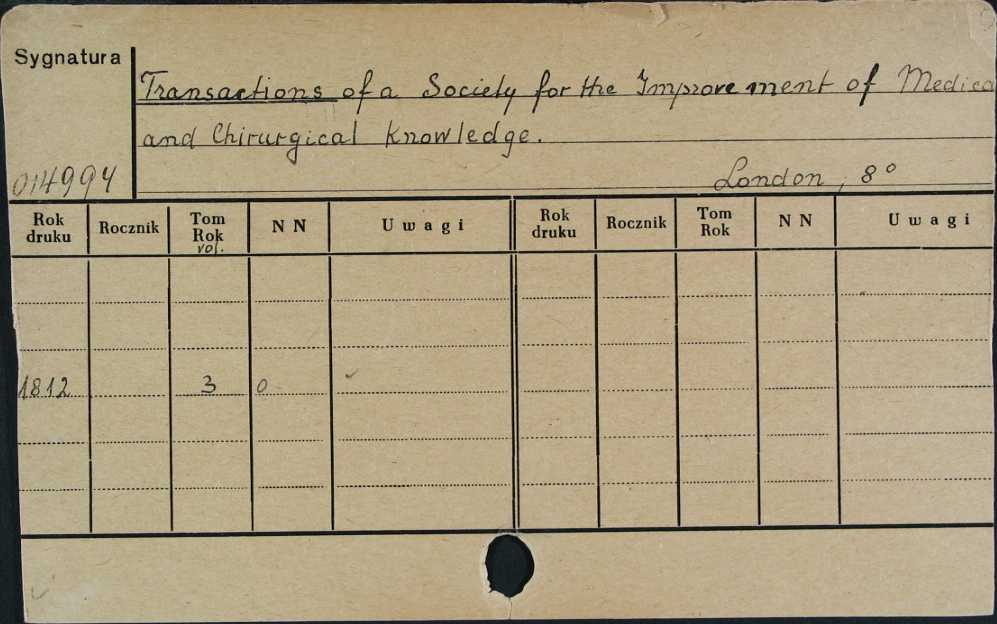 Sygnatura
Transactions of a Society for the Improvement of Medica
and Chirurgical Knowledge.
014994
London, 8°
Rok druku Rocznik Tom Rok vol. N N Uwagi Rok druku Rocznik Tom Rok N N Uwagi
1812 3 0